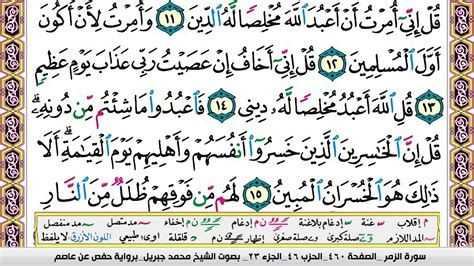 قُلْ إِنِّىٓ أُمِرْتُ أَنْ أَعْبُدَ ٱللَّهَ مُخْلِصًا لَّهُ ٱلدِّينَ ١١ وَأُمِرْتُ لِأَنْ أَكُونَ
أَوَّلَ ٱلْمُسْلِمِينَ ١٢ قُلْ إِنِّىٓ أَخَافُ إِنْ عَصَيْتُ رَبِّى عَذَابَ يَوْمٍ عَظِيمٍ
١٣ قُلِ ٱللَّهَ أَعْبُدُ مُخْلِصًا لَّهُۥ دِينِى ١٤ فَٱعْبُدُوا۟ مَا شِئْتُم مِّن دُونِهِۦ ۗ
قُلْ إِنَّ ٱلْخَٰسِرِينَ ٱلَّذِينَ خَسِرُوٓا۟ أَنفُسَهُمْ وَأَهْلِيهِمْ يَوْمَ ٱلْقِيَٰمَةِ ۗ أَلَا
ذَٰلِكَ هُوَ ٱلْخُسْرَانُ ٱلْمُبِينُ ١٥ لَهُم مِّن فَوْقِهِمْ ظُلَلٌ مِّنَ ٱلنَّارِ
م إقلاب غنة إدغام بلاغنة إدغام إخفاء مد متصل مد منفصل
المد اللازم صلة كبرى مد وصلة صغرى قلقلة اوى؛ طبيعي اللون الأزرق لا يلفظ
سورة الزمر _ الصفحة ٤٦٠ _ الحزب ٤٦ _ الجزء ٢٣ _ بصوت الشيخ محمد جبريل _ برواية حفص عن عاصم